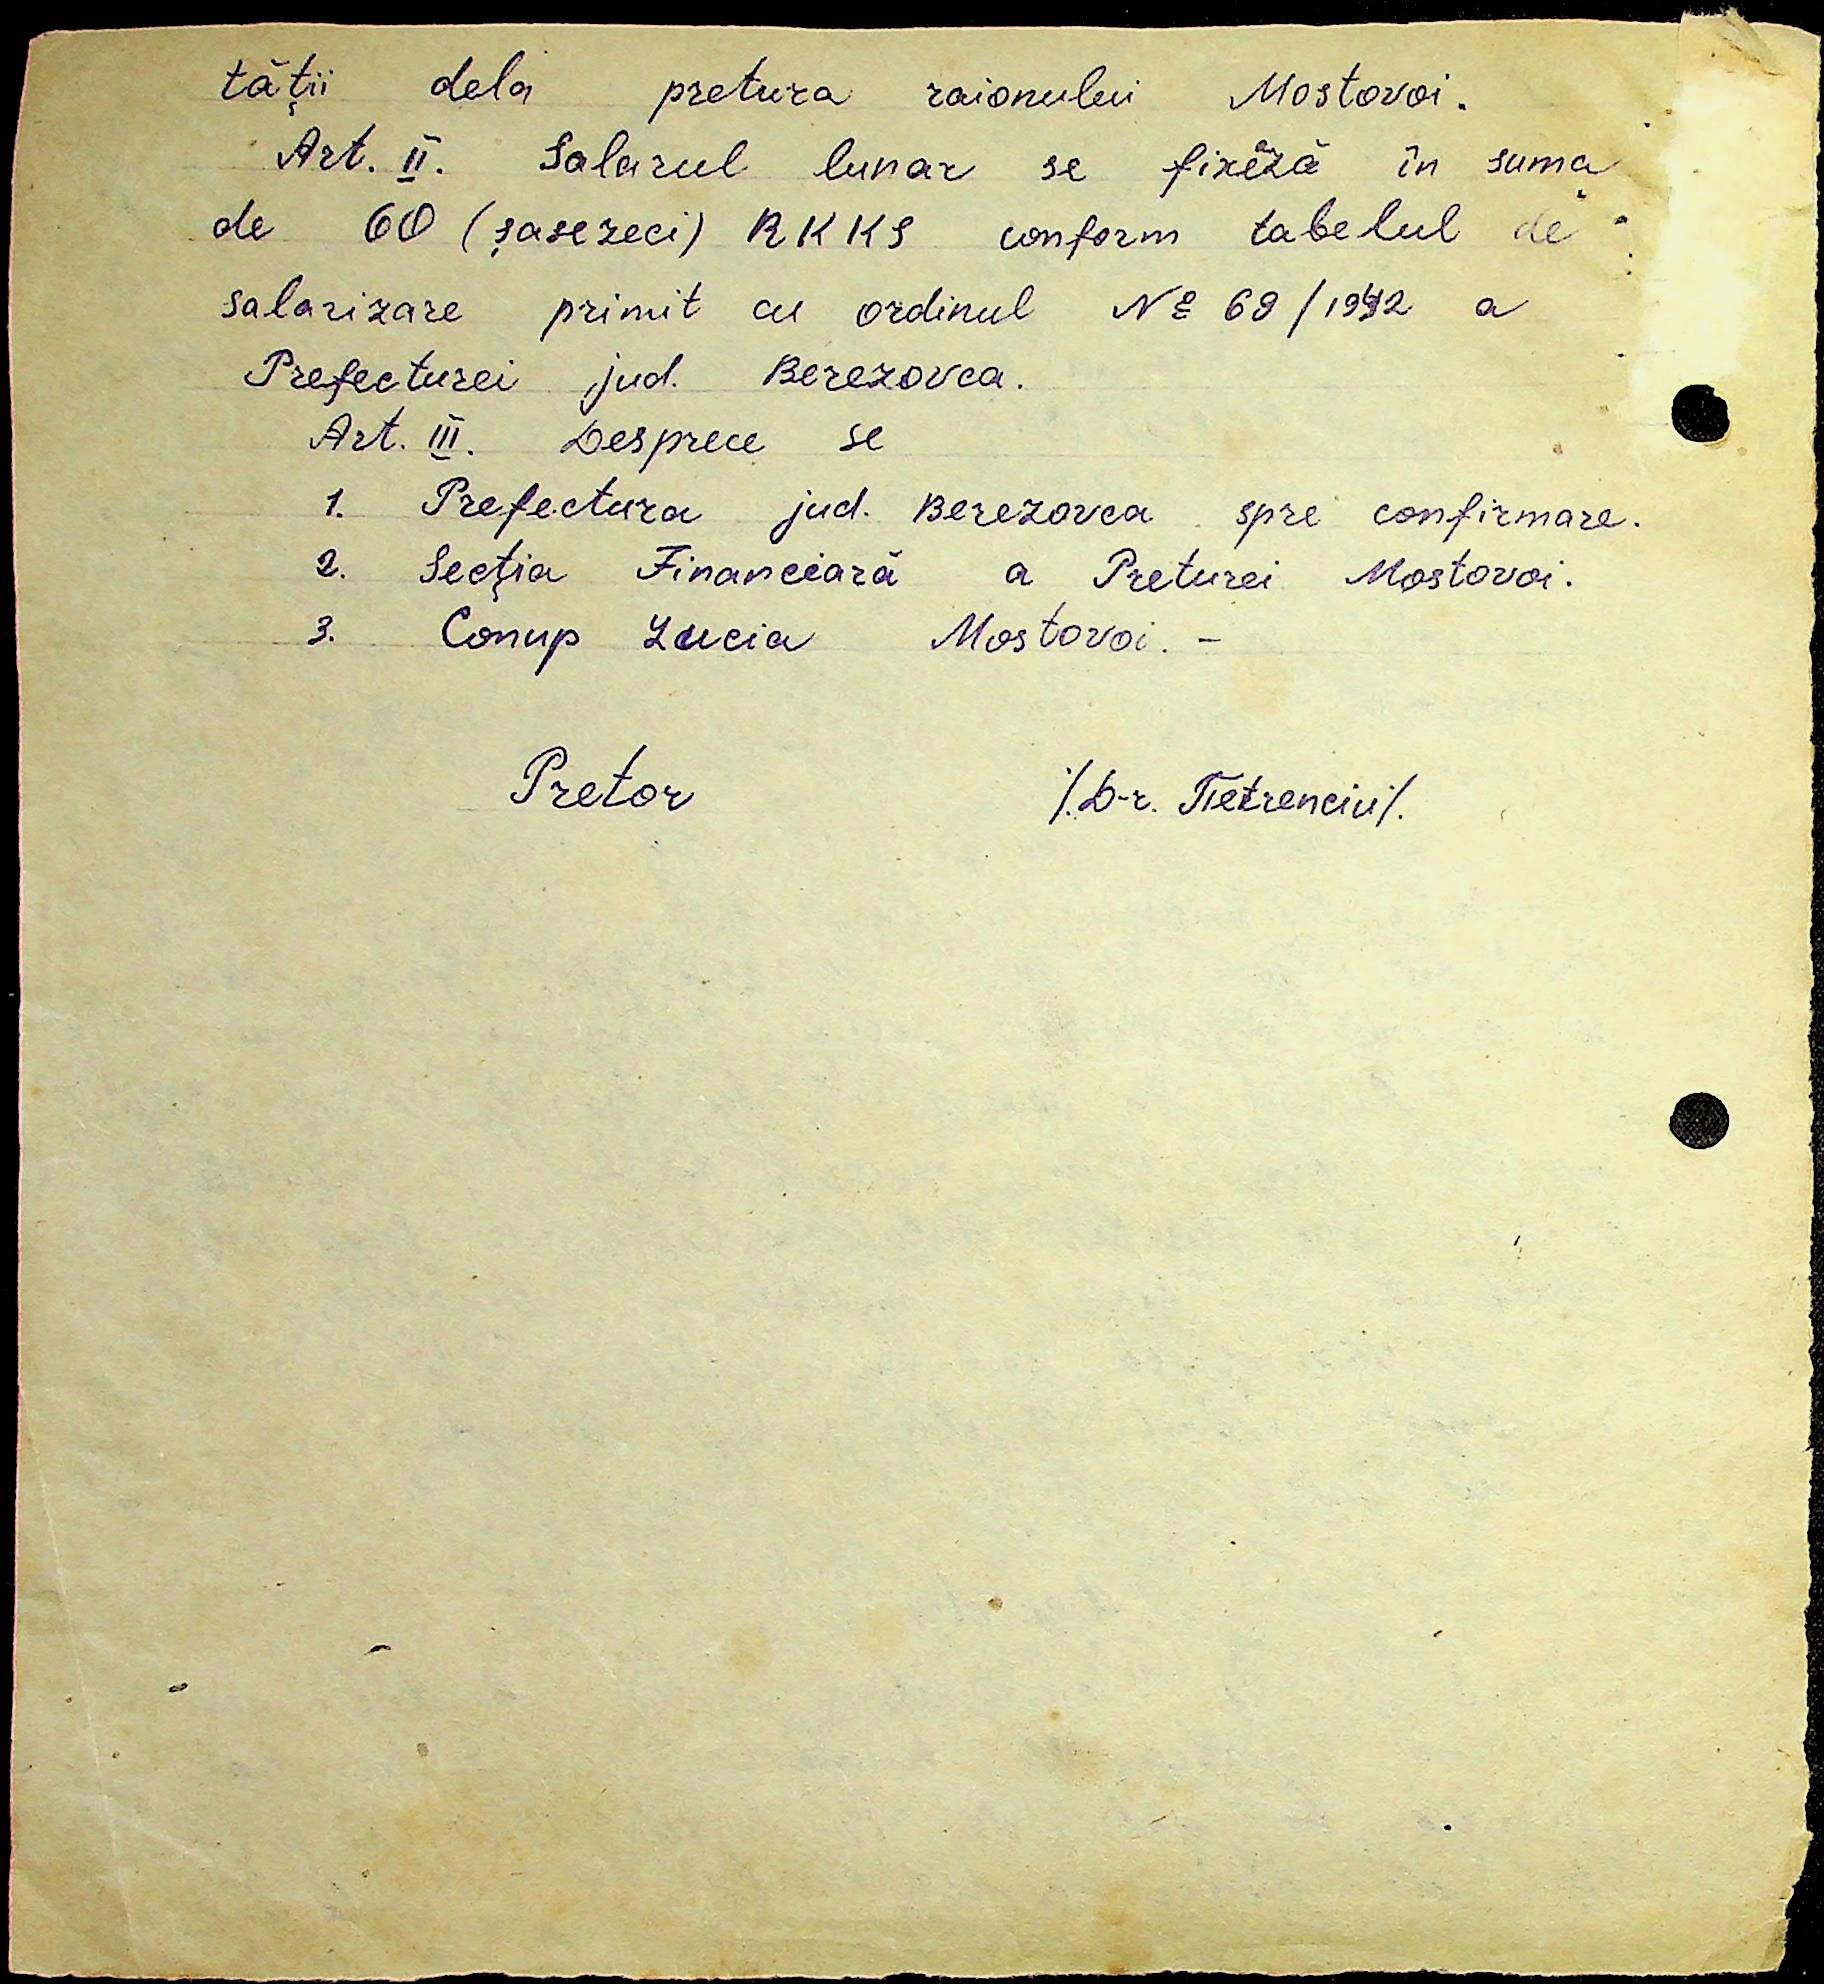 tăţii dela pretura raionului Mostovoi.
Art. II. Salarul lunar se fixează în suma
de 60 (şasezeci) RKKS conform tabelul de
salarizare primit cu ordinul № 69/1942 a
Prefecturei jud. Berezovca.
Art. III. Desprece se
1. Prefectura jud. Berezovca spre confirmare.
2. Secţia Financeară a Preturei Mostovoi.
3. Conup Lucia Mostovoi. –
Pretor /.D-r. Петrenciu/.